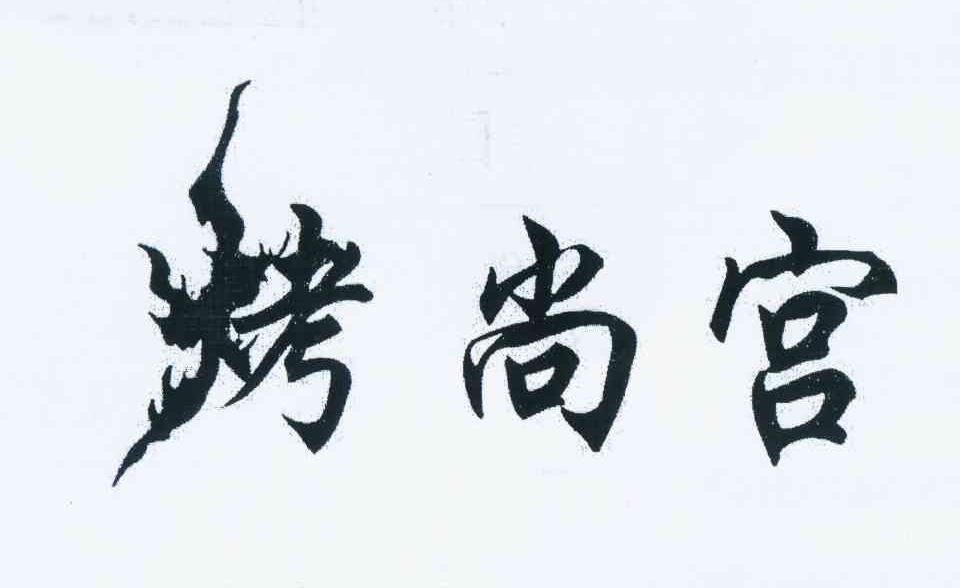 烤尚宫